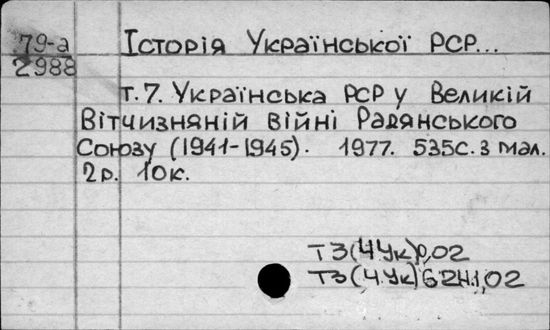 79-а
2988
Історія Української РСР...
т. 7. Українська РСР у Великій
Вітчизняній війні Радянського
Союзу (1941-1945). 1977. 535с. з мал.
2р. 10к.
Т3(4Ук)0,02
Т3(4Ук)624.1,02